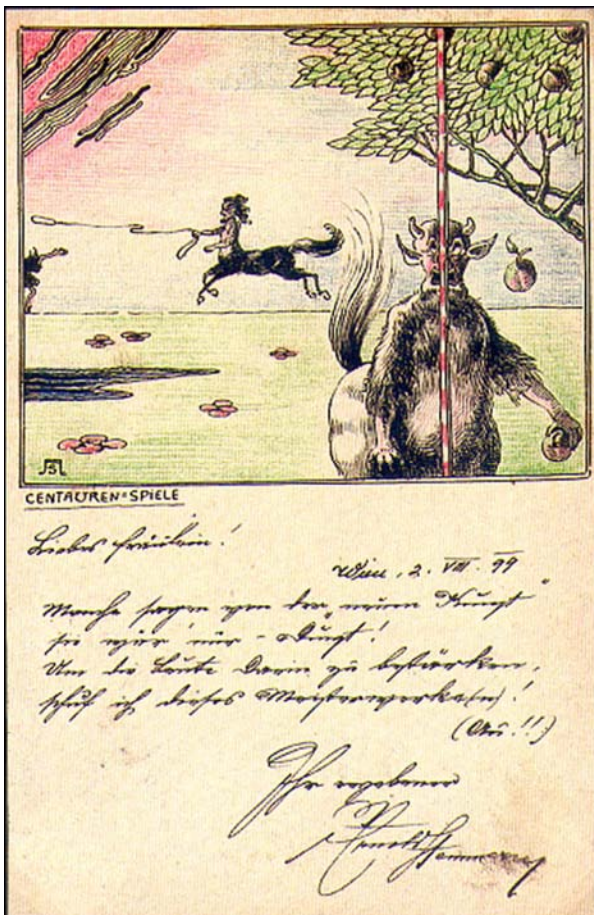 CENTAUREN=SPIELE
Liebes Fräulein!
Wien, 2. VIII. 99
Manche sagen von der „neuen Kunst"
sie wär' nur - Dunst!
Um die Leute darin zu bestärken,
schuf ich dieses Meisterwerke(n)!
(Au!!)
Ihr ergebener
Arnold